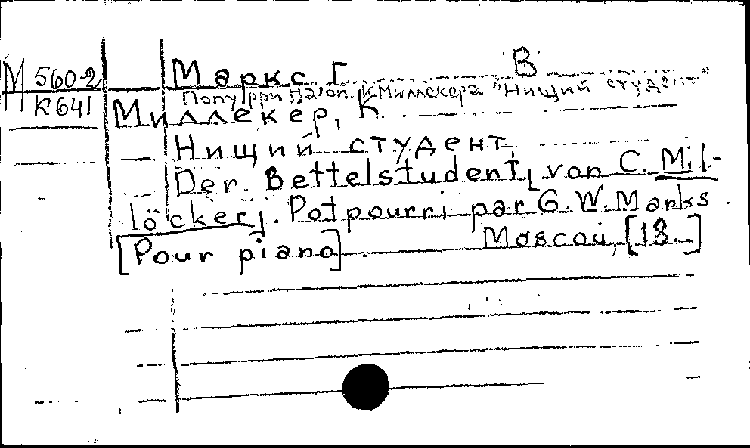 В
М 560-2 Маркс Г.
Попурри на оп. К. Миллекера "Нищий студент"
К 641 Миллекер, К.
Нищий студент
Der Bettelstudent [von C. Mil-
löcker]. Potpourri par G. W. Marks
[Pour piano] Moscou, [18..]